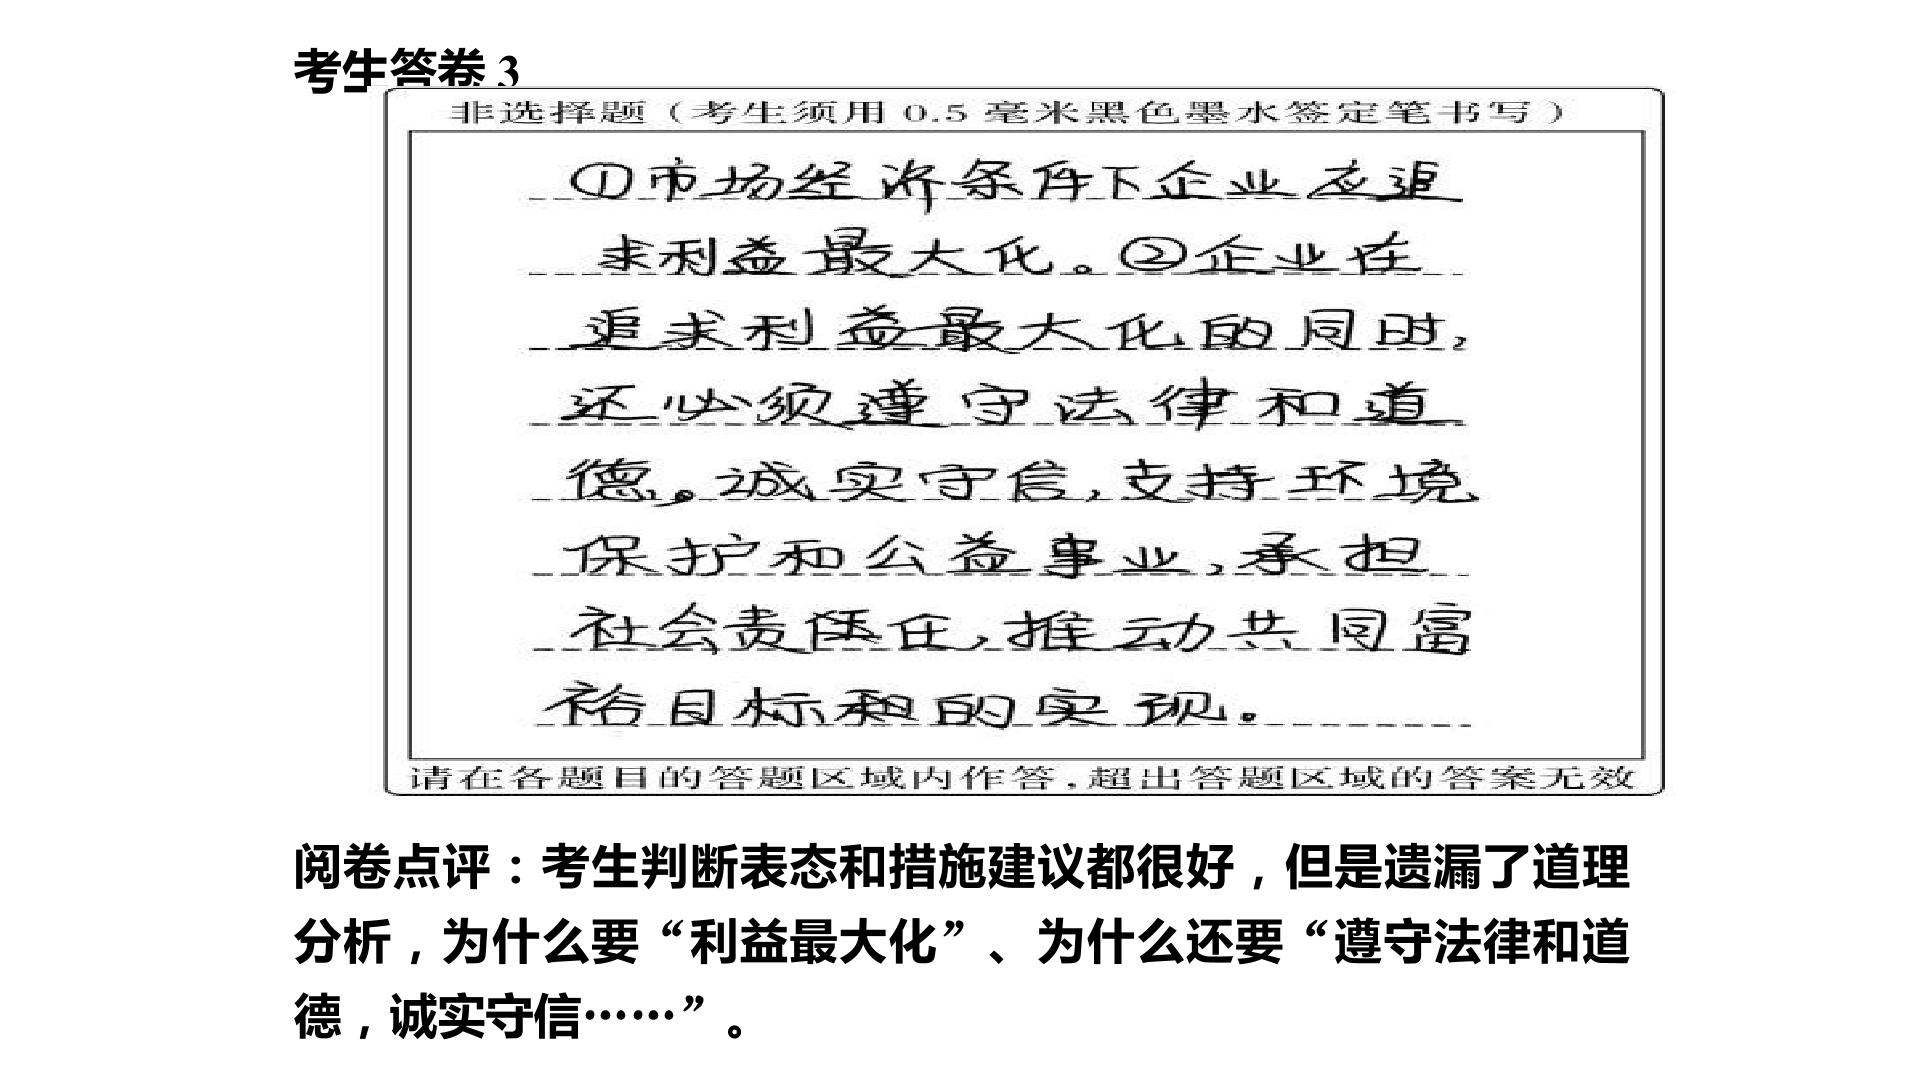 考生答卷3
非选择题（考生须用0.5毫米黑色墨水签定笔书写）
①市场经济条件下企业应追
求利益最大化。②企业在
追求利益最大化的同时，
还必须遵守法律和道
德。诚实守信，支持环境
保护和公益事业，承担
社会责任，推动共同富
裕目标的实现。
请在各题目的答题区域内作答，超出答题区域的答案无效
阅卷点评：考生判断表态和措施建议都很好，但是遗漏了道理
分析，为什么要“利益最大化”、为什么还要“遵守法律和道
德，诚实守信……”。